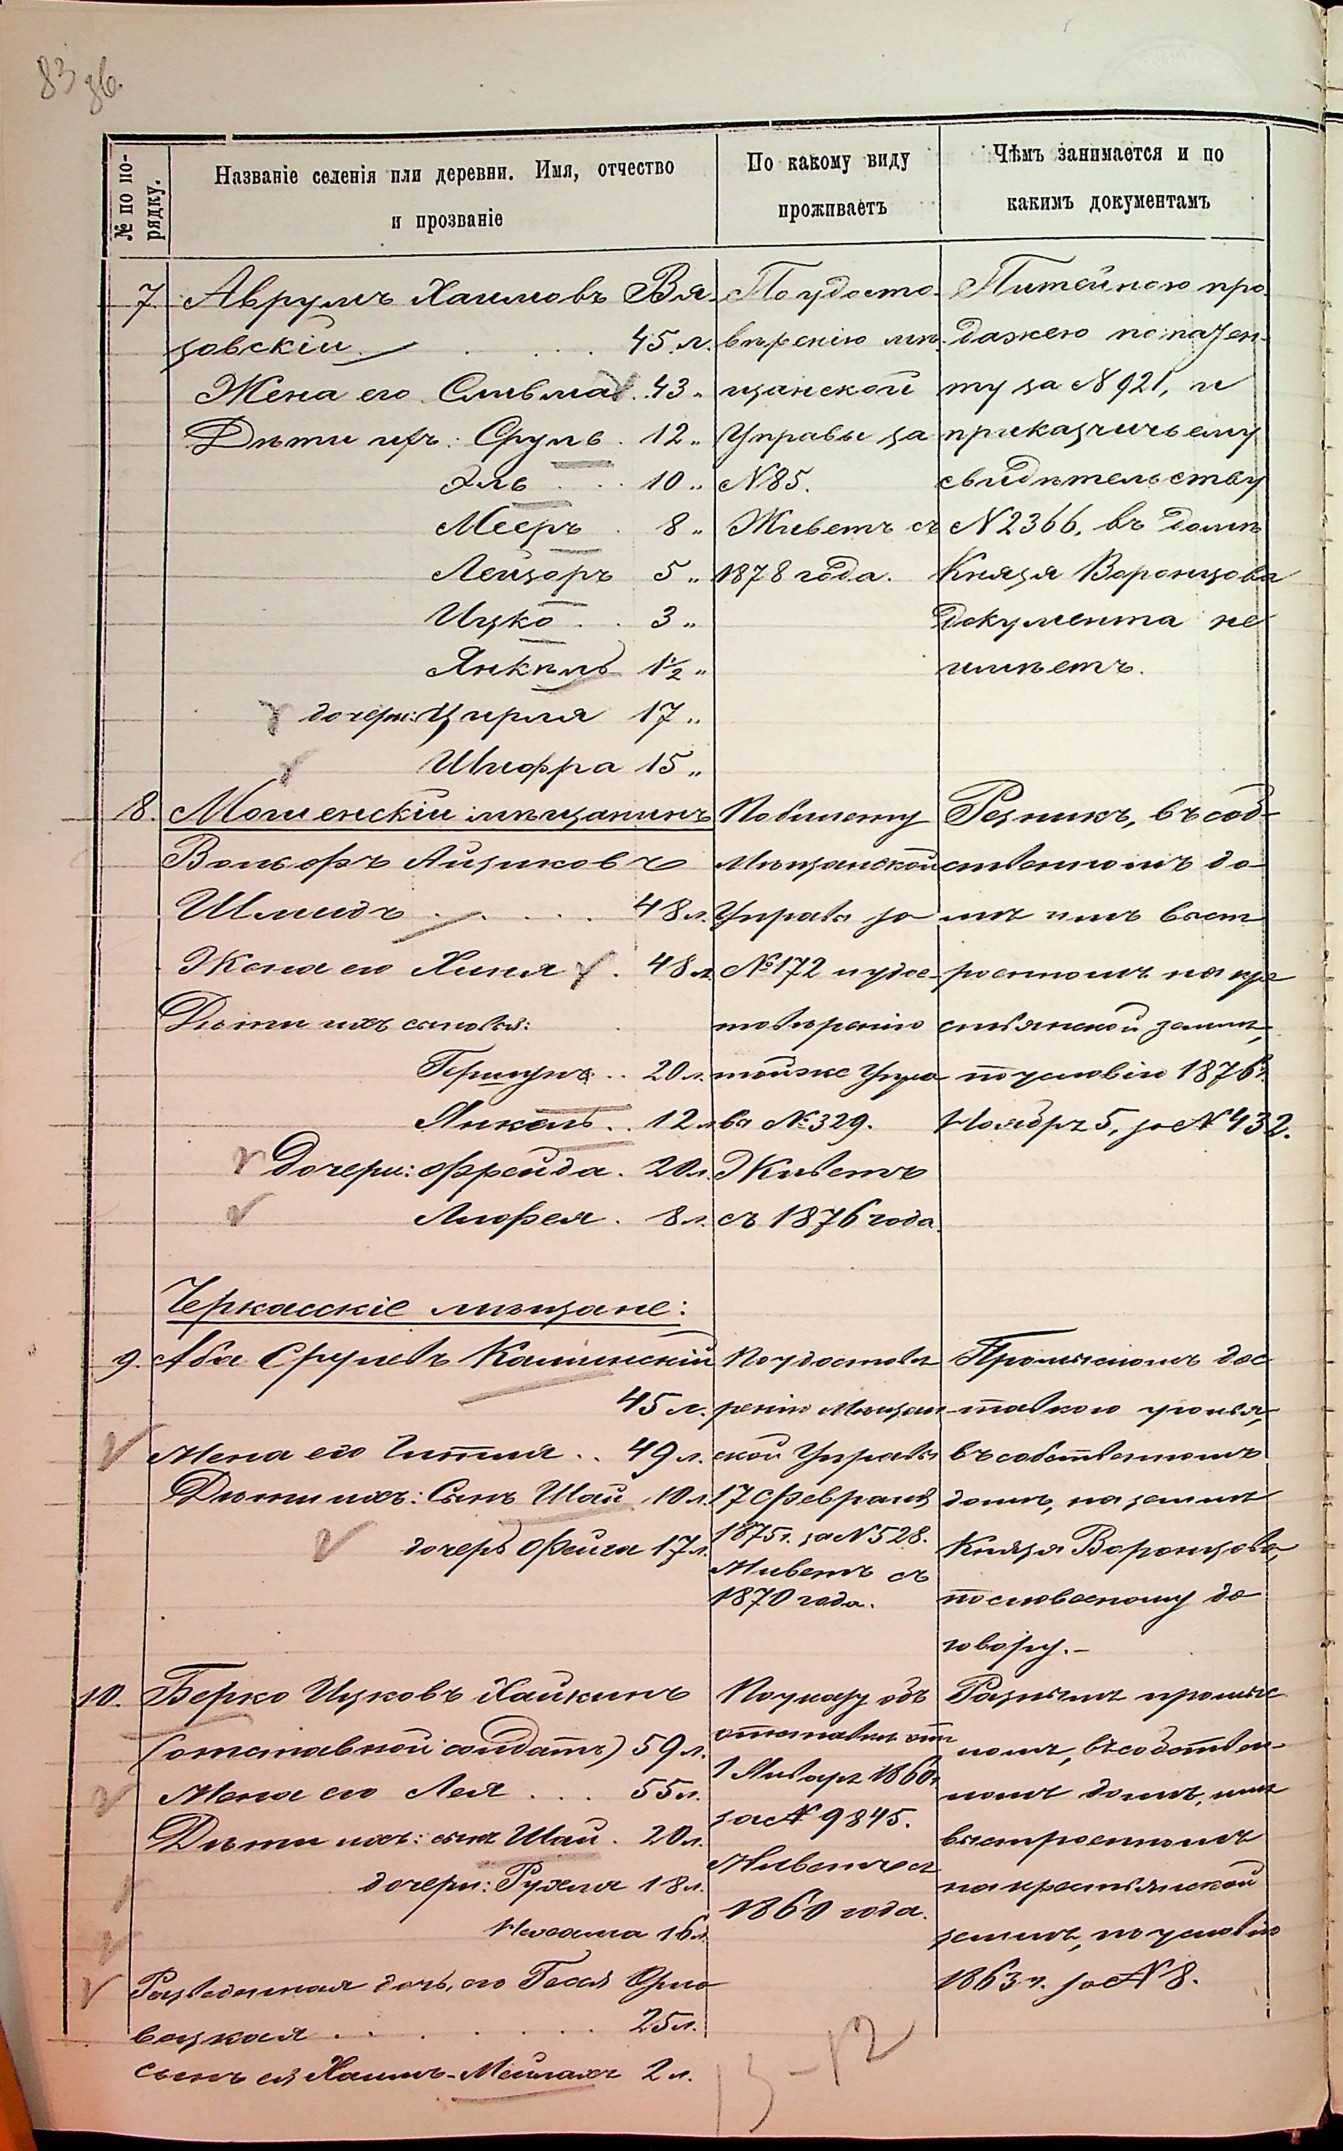 83 зв.
№ по по-
рядку.
Названіе селенія или деревни. Имя, отчество
и прозваніе
По какому виду
проживаетъ
Чѣмъ занимается и по
какимъ документамъ
7. Аврумъ Хаимовъ Вя-
зовскій 45 л.
Жена его Сивма 43 „
Дѣти ихъ: Сруль 12 „
Эль 10 „
Мееръ 8 „
Лейзоръ 5 „
Ицко 3 „
Янкель 1½ „
дочери: Цирля 17 „
Шифра 15 „
По удосто-
вѣренію мѣ-
щанской
Управы за
N 85.
Живетъ съ
1878 года.
Питейною про-
дажею по патен-
ту за N 921, и
приказчичьему
свидѣтельству
N 2366, въ домѣ
Князя Воронцова
документа не
имѣетъ.
8. Мошенскій мѣщанинъ
Вольфъ Айзиковъ
Шмидъ 48 л.
Жена его Хиня 48 л.
Дѣти ихъ сыновья:
Гершунъ 20 л.
Янкель 12 л.
Дочери: Фрейда 20 л.
8 л.
По билету
Мѣщанской
Управы за
№ 172 и удос-
товѣренію
той же Упра-
вы № 329.
Живетъ
съ 1876 года.
Резникъ, въ соб-
ственномъ до-
мѣ имъ выст-
роенномъ на кре-
стьянской землѣ,
по условію 1876 г.
Ноября 5, за N 432.
Черкасскіе мѣщане:
9. Аба Срулевъ Каминскій
45 л.
Жена его Гитля 49 л.
Дѣти ихъ: Сынъ Шай 10 л.
дочерь Фейга 17 л.
По удостовѣ-
ренію Мѣщан-
ской Управы
17 Февраля
1875 г. за N 528.
Живетъ съ
1870 года.
Промысломъ дос-
тавкою уголья,
въ собственномъ
домѣ, на землѣ
Князя Воронцова,
по словесному до-
говору.
10. Берко Ицковъ Хайкинъ
(отставной солдатъ) 59 л.
Жена его Лея 55 л.
Дѣти ихъ: сынъ Шай 20 л.
дочери: Рухля 18 л.
Нехама 16 л.
Разведенная дочь его Гася
25 л.
сынъ ея Хаимъ-Мейлахъ 2 л.
По указу объ
отставкѣ отъ
1 Января 1860 г.
за N 9845.
Живетъ съ
1860 года.
Разнымъ промыс-
ломъ, въ собствен-
номъ домѣ, имъ
выстроенномъ
на крестьянской
землѣ, по условію
1863 г. за N 8.
13 - 12